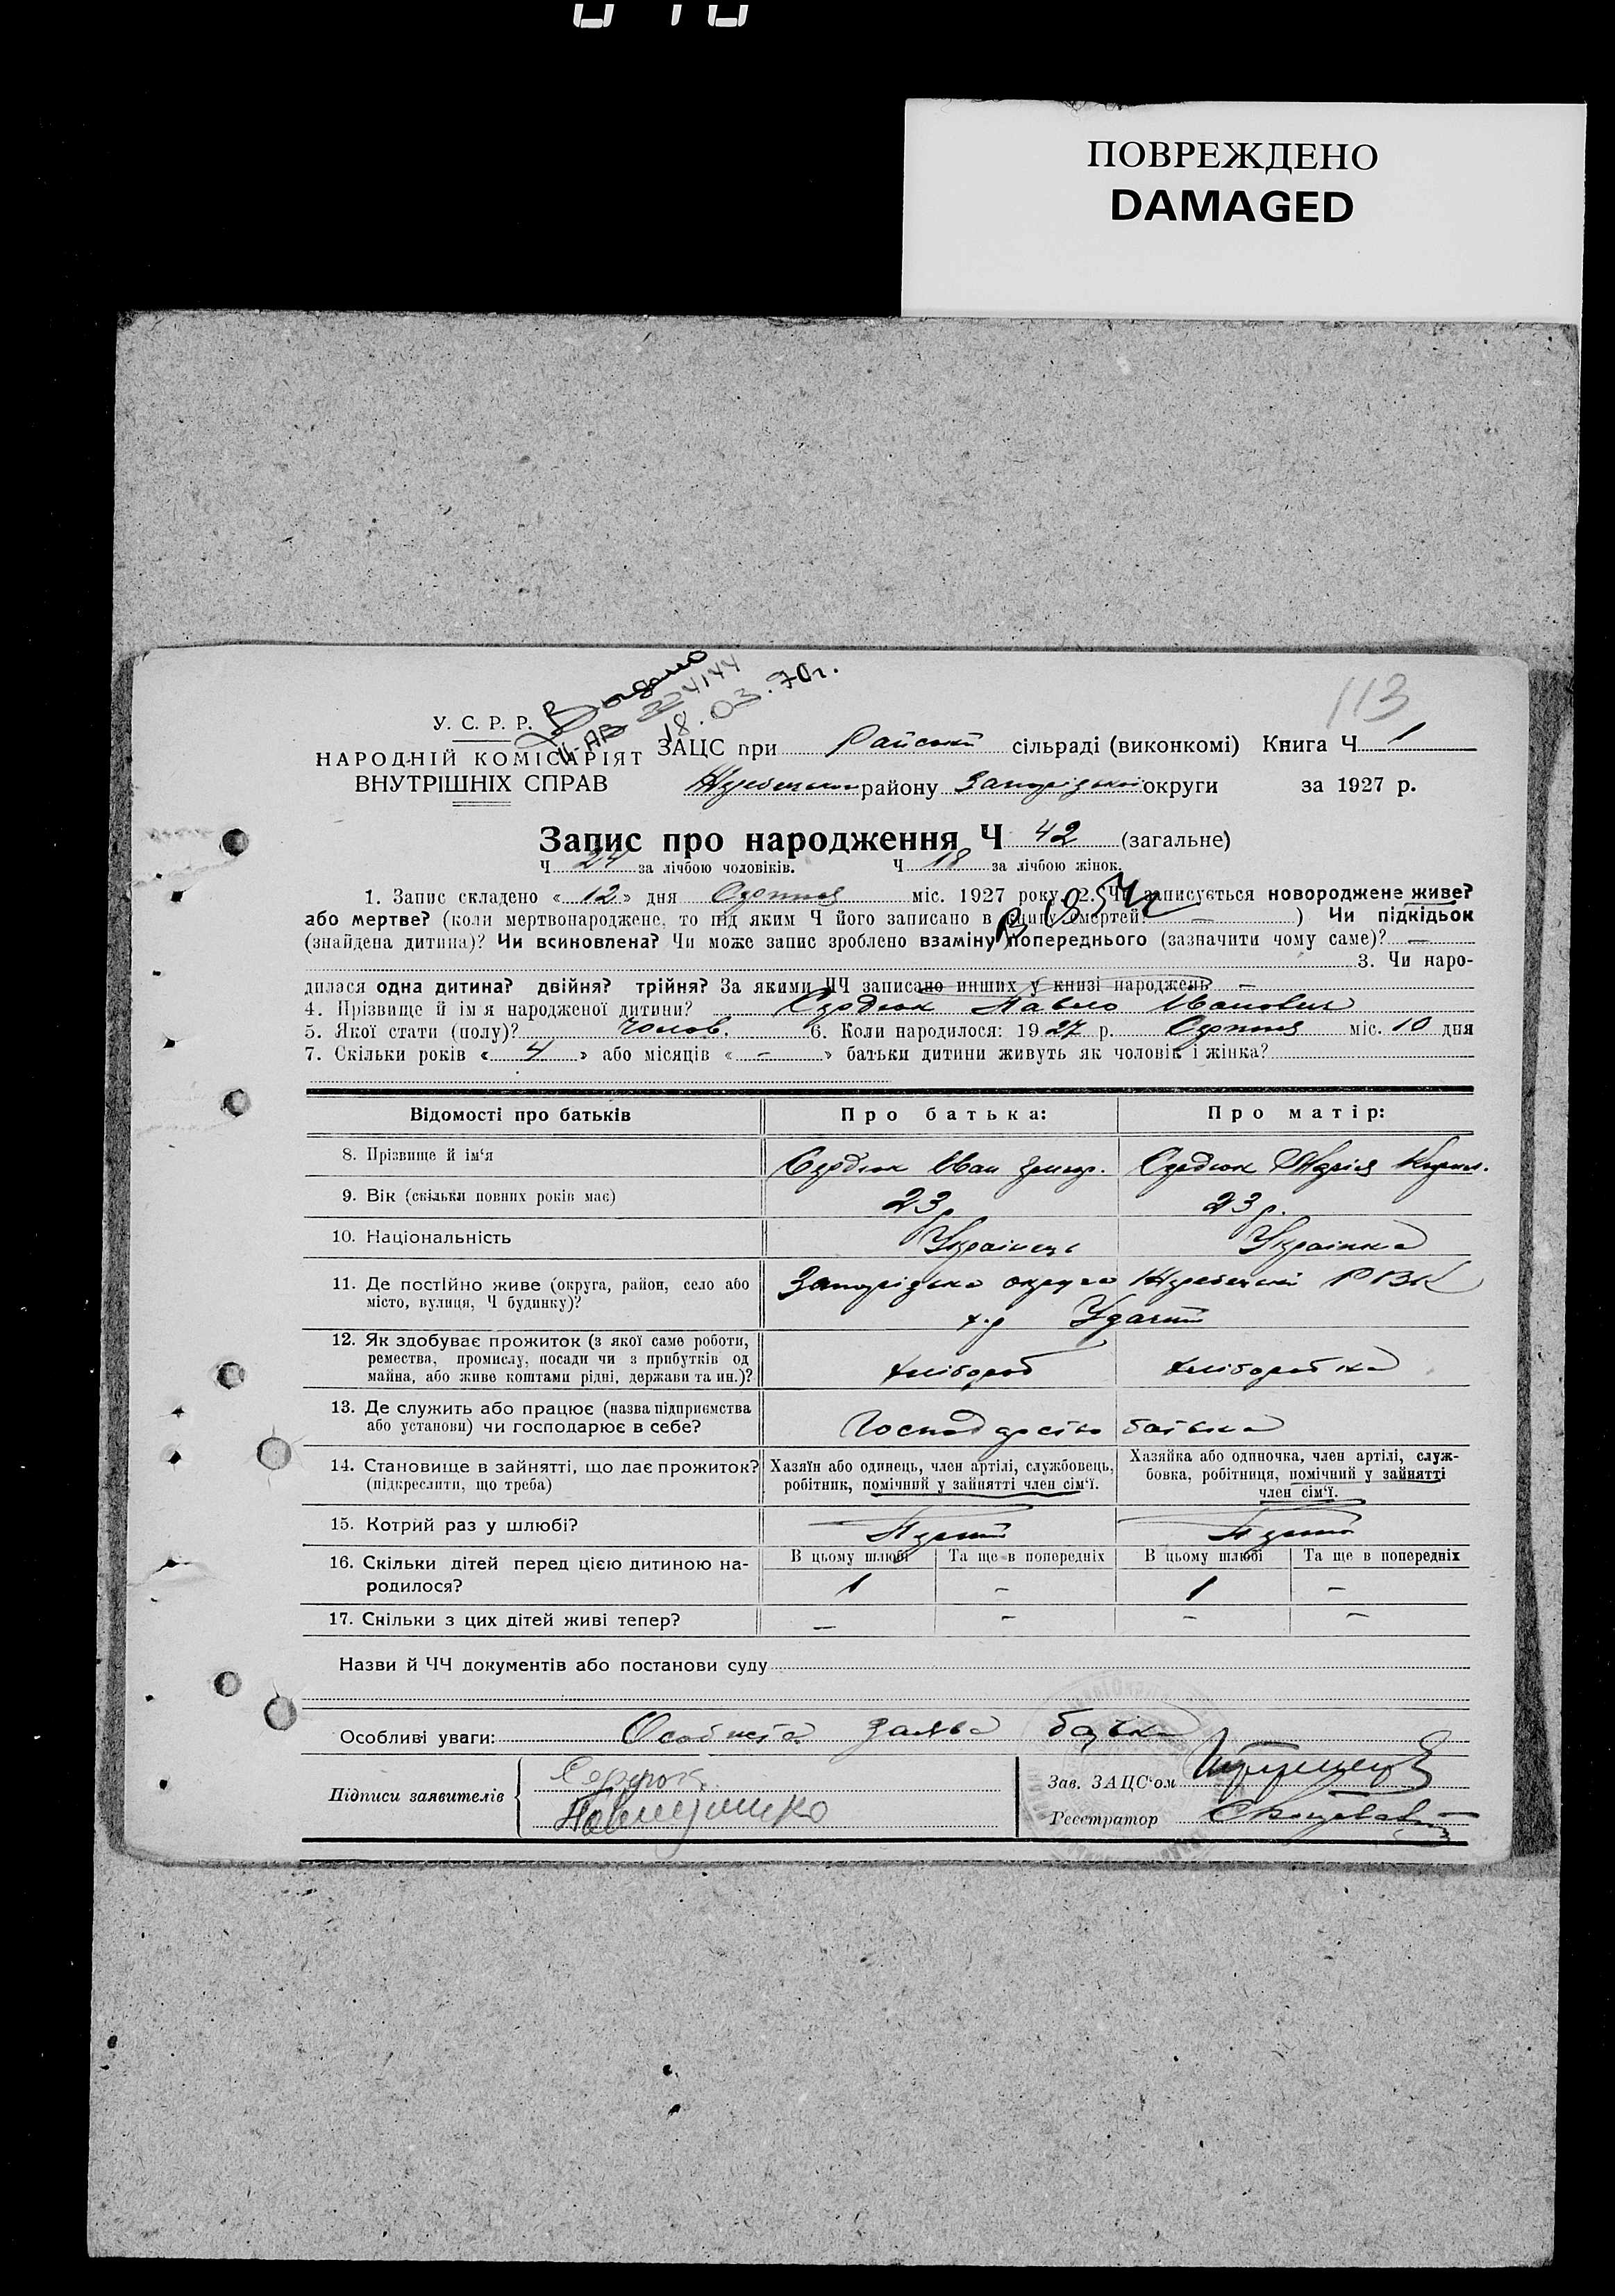 ПОВРЕЖДЕНО
DAMAGED
Выдано
II-АВ 324144
18.03.70г.
113
У. С. Р. Р.
НАРОДНІЙ КОМІСАРІЯТ
ВНУТРІШНІХ СПРАВ
ЗАЦС при Райській сільраді (виконкомі) Книга Ч 1
району Запорізької округи за 1927 р.
Запис про народження Ч 42 (загальне)
Ч 24 за лічбою чоловіків. Ч 18 за лічбою жінок.
1. Запис складено « 12 » дня Серпня міс. 1927 року. 2. Чи записується новороджене живе?
або мертве? (коли мертвонароджене, то під яким Ч його записано в книгу смертей? — ) Чи підкідьок
(знайдена дитина)? Чи всиновлена? Чи може запис зроблено взаміну попереднього (зазначити чому саме)? —
3. Чи наро-
дилася одна дитина? двійня? трійня? За якими ЧЧ записано инших у книзі народжень? —
4. Прізвище й ім'я народженої дитини? Сердюк Павло Іванович
5. Якої стати (полу)? Чолов. 6. Коли народилося: 1927 р. Серпня міс. 10 дня
7. Скільки років « 4 » або місяців « - » батьки дитини живуть як чоловік і жінка?
Відомості про батьків Про батька: Про матір:
8. Прізвище й ім'я Сердюк Іван Григор. Сердюк Марія Кирил.
9. Вік (скільки повних років має) 23 р. 23 р.
10. Національність Українець Українка
11. Де постійно живе (округа, район, село або
місто, вулиця, Ч будинку)?
Запорізька округа РВК
х-р Удачний
12. Як здобуває прожиток (з якої саме роботи,
ремества, промислу, посади чи з прибутків од
майна, або живе коштами рідні, держави та ин.)?
хлібороб хліборобка
13. Де служить або працює (назва підприємства
або установи) чи господарює в себе?
Господарство батька
14. Становище в зайнятті, що дає прожиток?
(підкреслити, що треба)
Хазяїн або одинець, член артілі, службовець,
робітник, помічний у зайнятті член сім'ї.
Хазяйка або одиночка, член артілі, служ-
бовка, робітниця, помічний у зайнятті
член сім'ї.
15. Котрий раз у шлюбі? Перший Перший
16. Скільки дітей перед цією дитиною на-
родилося?
В цьому шлюбі Та ще в попередніх В цьому шлюбі Та ще в попередніх
1 - 1 -
17. Скільки з цих дітей живі тепер? — - - -
Назви й ЧЧ документів або постанови суду
Особливі уваги: Особиста заява батька
Підписи заявителів
Сердюк
Зав. ЗАЦС'ом
Реєстратор